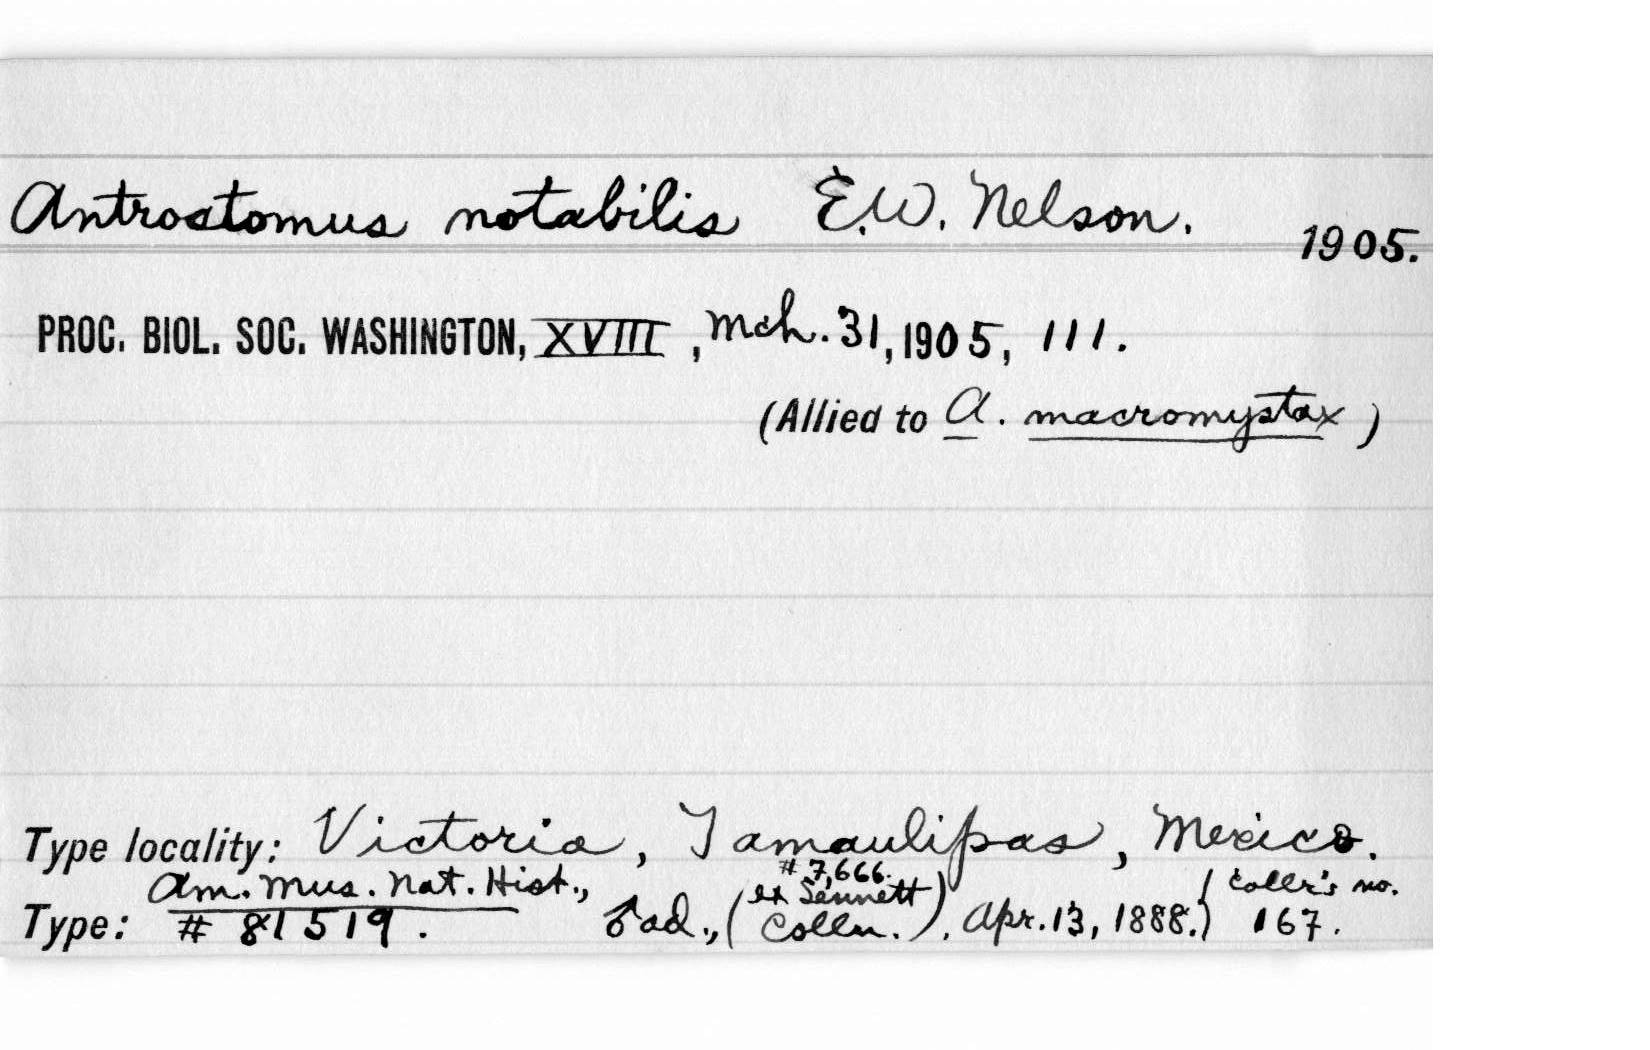 Antrostomus notabilis E.W. Nelson.
1905.
PROC. BIOL. SOC. WASHINGTON, XVIII, Mch. 31, 1905, 111.
(Allied to A. macromystax)
Type locality: Victoria, Tamaulipas, Mexico.
Am. Mus. Nat. Hist., #7,666. Collr's no.
Type: # 81519. ♂ ad., (ex Sennett Colln.), Apr. 13, 1888. 167.